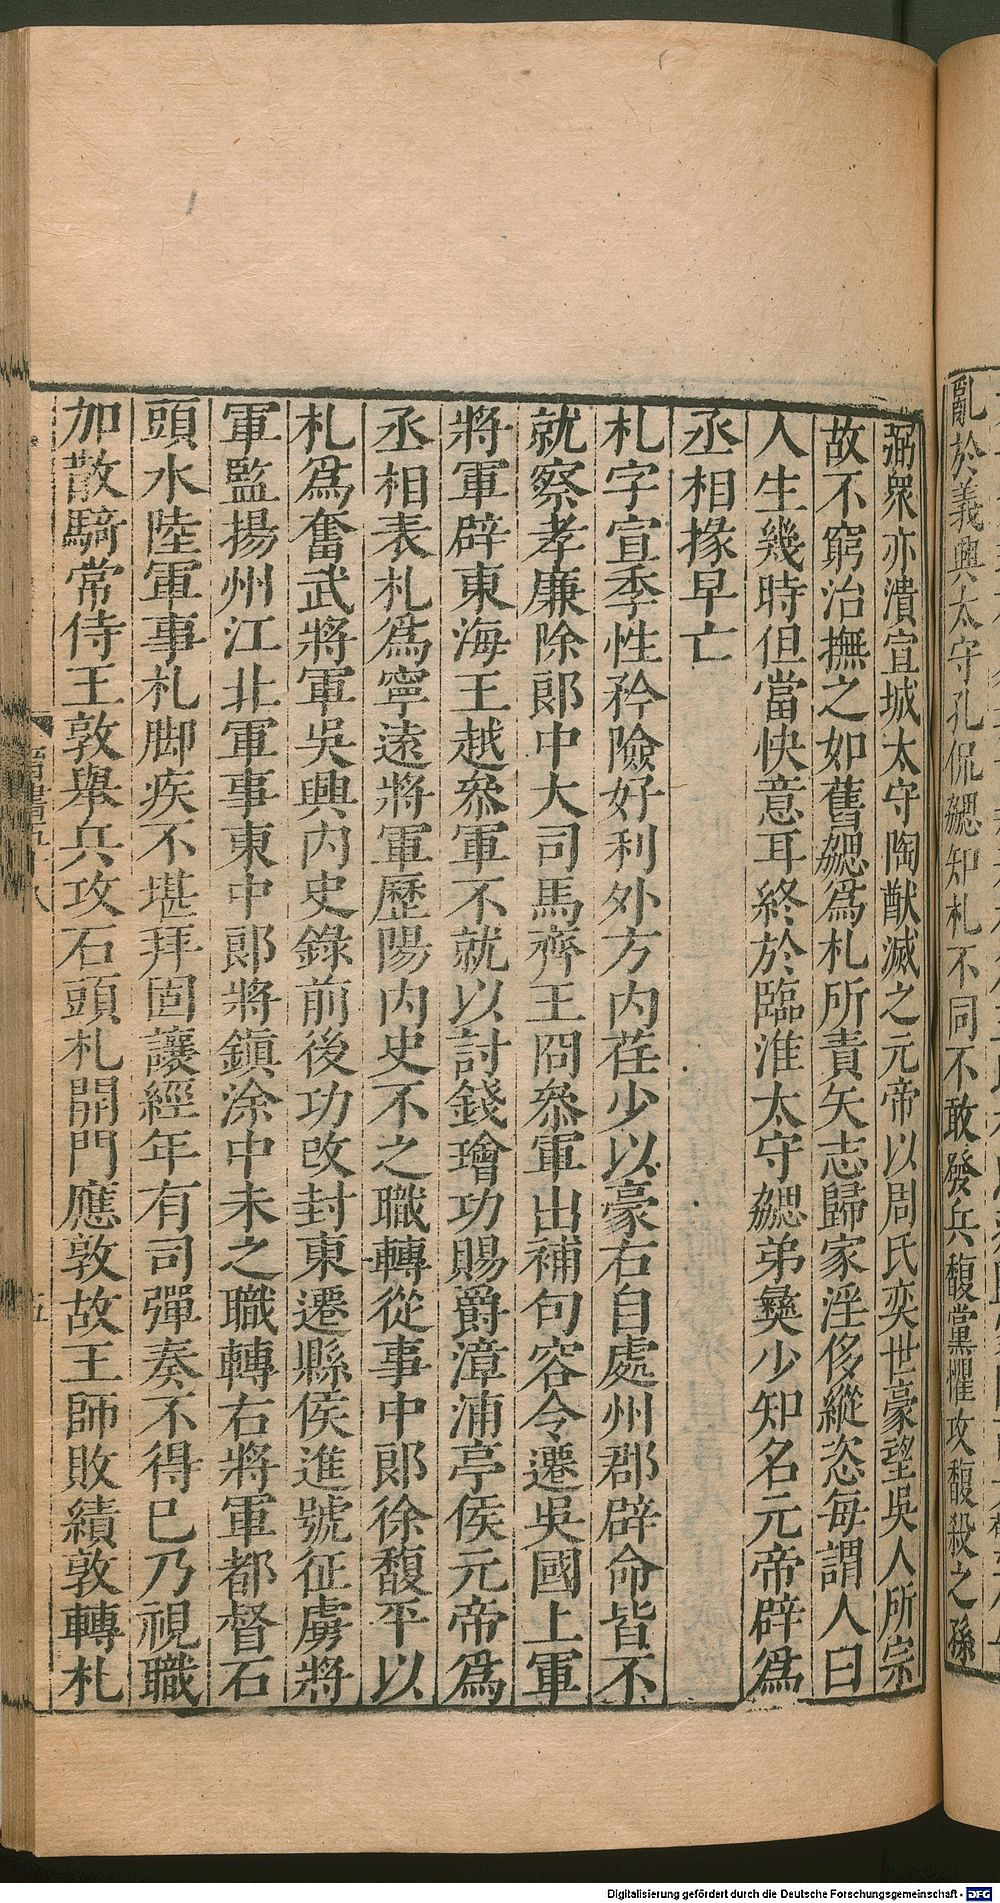 亂於義興太守孔侃勰知札不同不敢發兵馥黨懼攻馥殺之孫
弼衆亦潰宣城太守陶猷滅之元帝以周氏奕世豪望吳人所宗
故不窮治撫之如舊勰爲札所責矢志歸家淫侈縱恣毎謂人曰
人生幾時但當快意耳終於臨淮太守勰弟彝少知名元帝辟爲
丞相掾早亡
札字宣季性矜險好利外方内荏少以豪右自處州郡辟命皆不
就察孝廉除郎中大司馬齊王冏叅軍出補句容令遷吳國上軍
將軍辟東海王越叅軍不就以討錢璯功賜爵漳浦亭侯元帝爲
丞相表札爲寧遠將軍歷陽内史不之職轉從事中郎徐馥平以
札爲奮武將軍吳興内史錄前後功改封東遷縣侯進號征虜將
軍監揚州江北軍事東中郎將鎮涂中未之職轉右將軍都督石
頭水陸軍事札脚疾不堪拜固讓經年有司彈奏不得已乃視職
加散騎常侍王敦舉兵攻石頭札開門應敦故王師敗績敦轉札
五
Digitalisierung gefördert durch die Deutsche Forschungsgemeinschaft - DFG